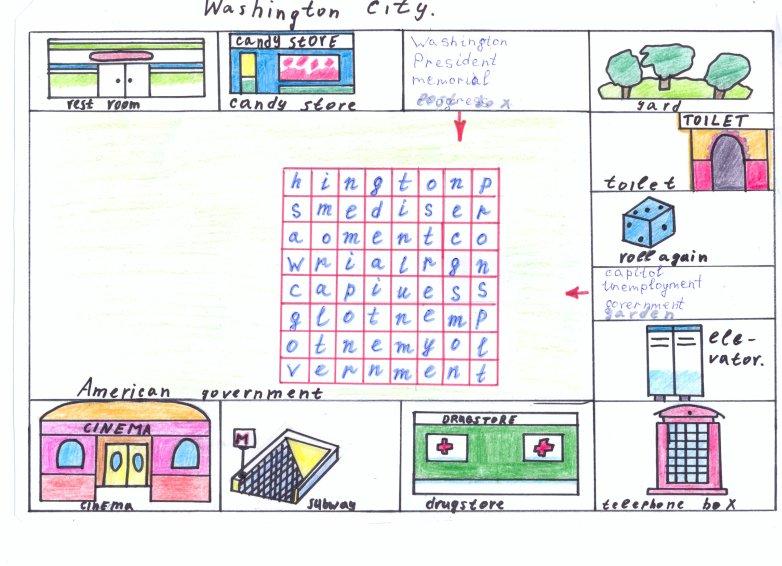 Washington City.
CANDY STORE
rest room
candy store
Washington
President
memorial
yard
TOILET
toilet
roll again
capitol
unemployment
government
garden
h i n g t o n p
s m e d i s e r
a o m e n t c o
w r i a l r g n
c a p i u e s s
g l o t n e m p
o t n e m y o l
v e r n m e n t
ele-
vator.
American government
CINEMA
cinema
M
subway
DRUGSTORE
drugstore
telephone box